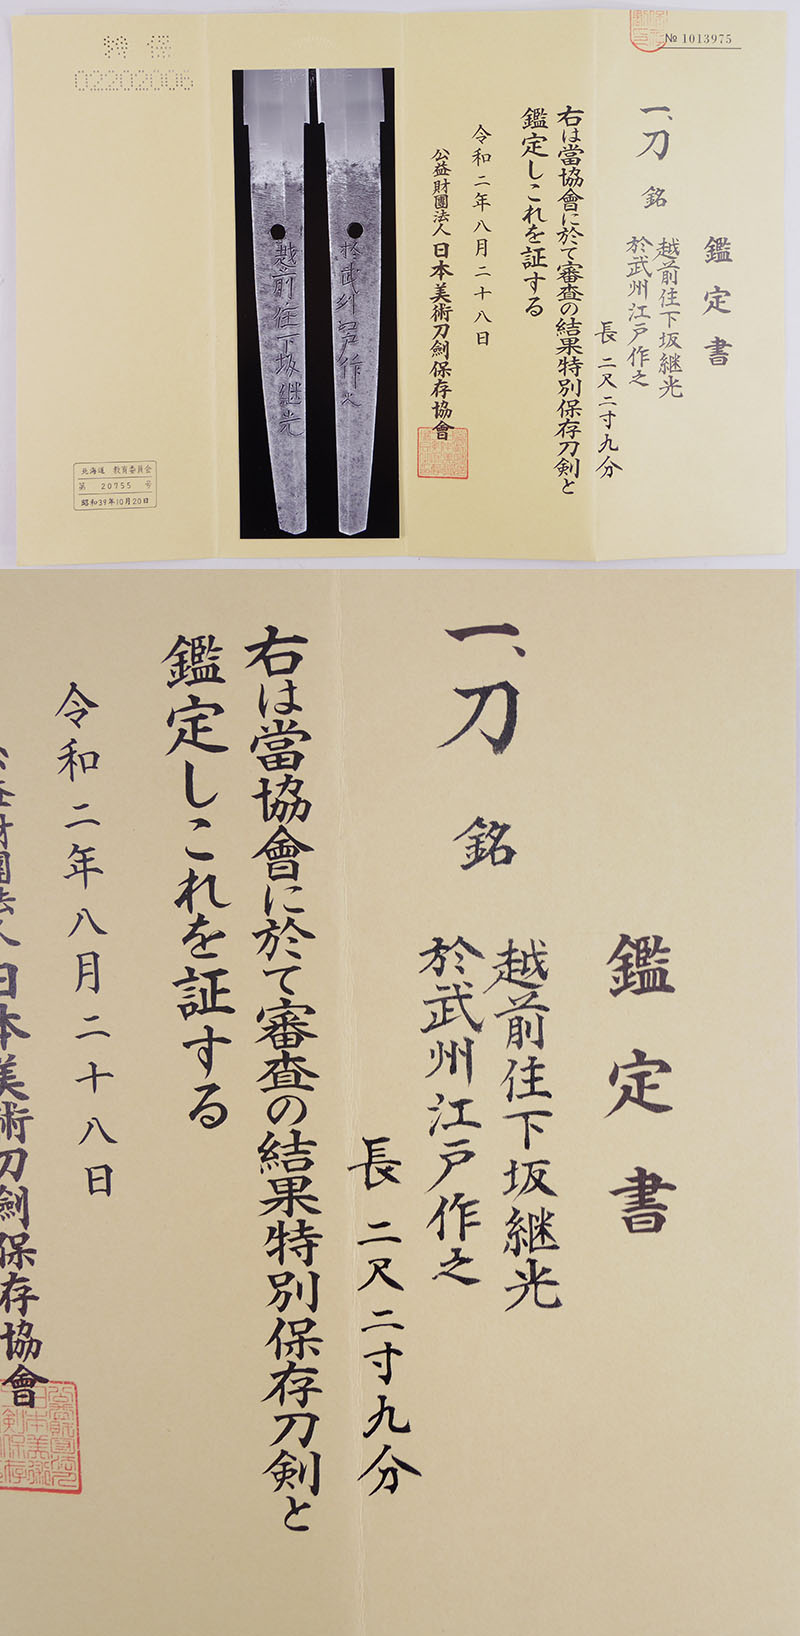 № 1013975
鑑定書
一、刀 銘 越前住下坂継光
於武州江戸作之
長 二尺二寸九分
右は當協會に於て審査の結果特別保存刀剣と
鑑定しこれを証する
令和二年八月二十八日
公益財團法人 日本美術刀劍保存協會
於武州江戸作之
越前住下坂継光
02202006
北海道 教育委員会
第 20755 号
昭和39年10月20日
鑑定書
一、刀 銘 越前住下坂継光
於武州江戸作之
長 二尺二寸九分
右は當協會に於て審査の結果特別保存刀剣と
鑑定しこれを証する
令和二年八月二十八日
公益財團法人 日本美術刀劍保存協會